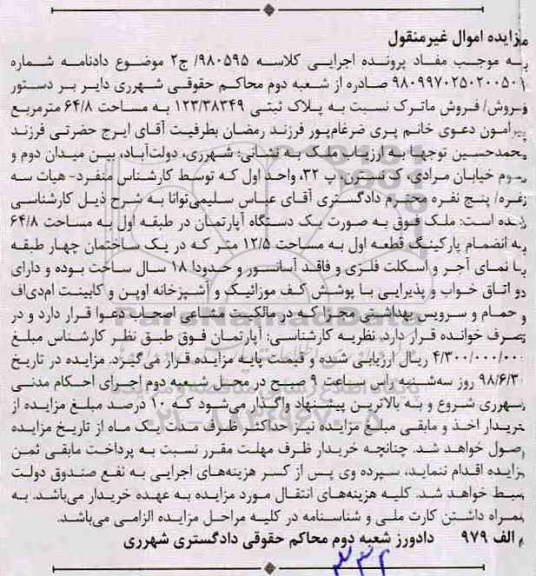 مزایده اموال غیرمنقول
به موجب مفاد پرونده اجرایی کلاسه ۹۸۰۵۹۵/ ج۲ موضوع دادنامه شماره
۹۸۰۹۹۷۰۲۵۰۲۰۰۵۰۱ صادره از شعبه دوم محاکم حقوقی شهرری دایر بر دستور
فروش/ فروش ماترک نسبت به پلاک ثبتی ۱۲۳/۳۸۳۴۹ به مساحت ۶۴/۸ مترمربع
پیرامون دعوی خانم پری ضرغام‌پور فرزند رمضان بطرفیت آقای ایرج حضرتی فرزند
محمدحسین توجهاً به ارزیابی ملک به نشانی: شهرری، دولت‌آباد، بین میدان دوم و
سوم خیابان مرادی، ک نسرین، پ ۳۲، واحد اول که توسط کارشناس منفرد- هیات سه
نفره/ پنج نفره محترم دادگستری آقای عباس سلیمی‌توانا به شرح ذیل کارشناسی
شده است: ملک فوق به صورت یک دستگاه آپارتمان در طبقه اول به مساحت ۶۴/۸
به انضمام پارکینگ قطعه اول به مساحت ۱۲/۵ متر که در یک ساختمان چهار طبقه
با نمای آجر و اسکلت فلزی و فاقد آسانسور و حدودا ۱۸ سال ساخت بوده و دارای
دو اتاق خواب و پذیرایی با پوشش کف موزائیک و آشپزخانه اوپن و کابینت ام‌دی‌اف
و حمام و سرویس بهداشتی مجزا که در مالکیت مشاعی اصحاب دعوا قرار دارد و در
تصرف خوانده قرار دارد. نظریه کارشناسی: آپارتمان فوق طبق نظر کارشناس مبلغ
۴/۳۰۰/۰۰۰/۰۰۰ ریال ارزیابی شده و قیمت پایه مزایده قرار می‌گیرد. مزایده در تاریخ
روز سه‌شنبه راس ساعت ۹ صبح در محل شعبه دوم اجرای احکام مدنی
شهرری شروع و به بالاترین پیشنهاد واگذار می‌شود که ۱۰ درصد مبلغ مزایده از
خریدار اخذ و مابقی مبلغ مزایده نیز حداکثر ظرف مدت یک ماه از تاریخ مزایده
وصول خواهد شد. چنانچه خریدار ظرف مهلت مقرر نسبت به پرداخت مابقی ثمن
مزایده اقدام ننماید، سپرده وی پس از کسر هزینه‌های اجرایی به نفع صندوق دولت
ضبط خواهد شد. کلیه هزینه‌های انتقال مورد مزایده به عهده خریدار می‌باشد. به
همراه داشتن کارت ملی و شناسنامه در کلیه مراحل مزایده الزامی می‌باشد.
م الف ۹۷۹ دادورز شعبه دوم محاکم حقوقی دادگستری شهرری